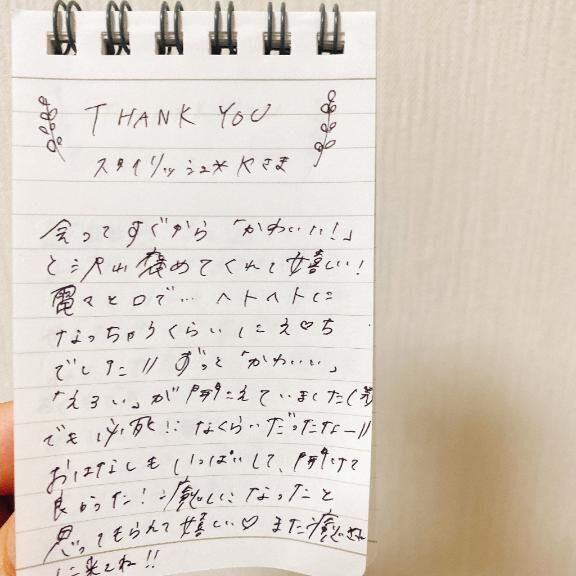 THANK YOU
スタイリッシュ*Kさま
会ってすぐから「かわいい!」
と沢山褒めてくれて嬉しい!
電マと口で… ヘトヘトに
なっちゃうくらいにえ♡ち
でした!! ずっと「かわいい」
「えろい」が聞こえていました(笑
でも必死!! なくらいだったなー!!
おはなしもいっぱいして、聞けて
良かった! 癒しになったと
思ってもらえて嬉しい♡ また癒され
に来てね!!